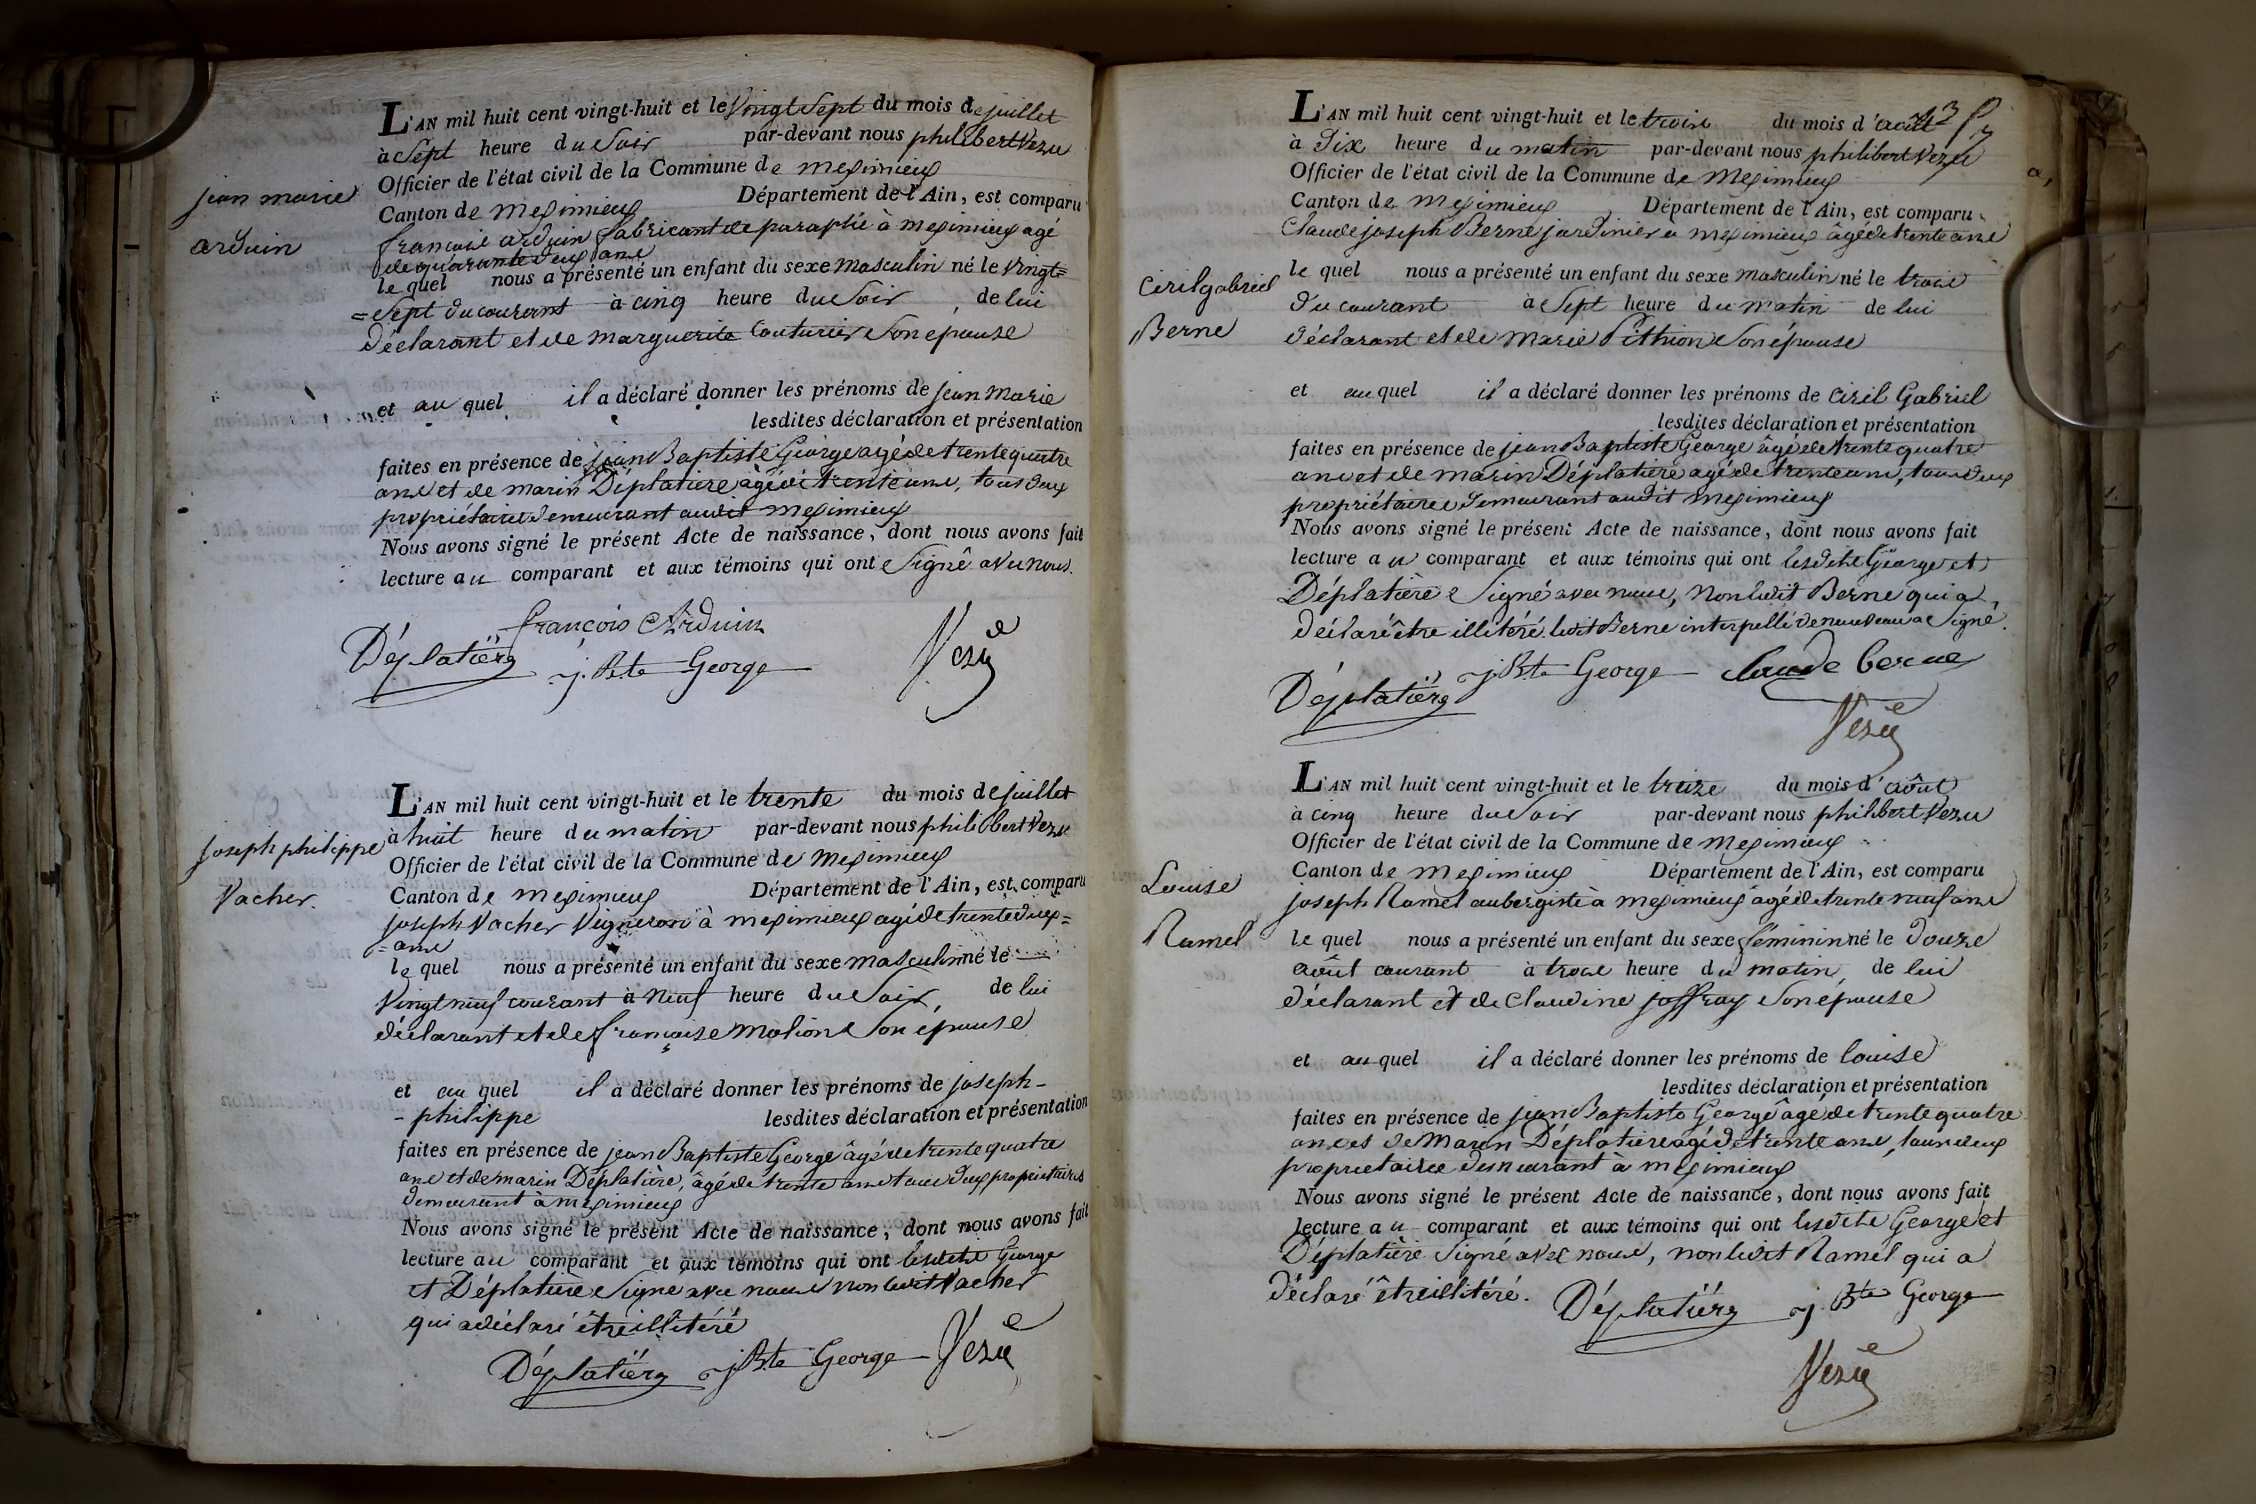 jean marie
arduin
L'AN mil huit cent vingt-huit et le vingt sept du mois de juillet
à sept heure du soir par-devant nous philibert Vezu
Officier de l'état civil de la Commune de meximieux
Canton de meximieux Département de l'Ain, est comparu
françois arduin fabricant de paraplü à meximieux agé
de quarante deux ans
le quel nous a présenté un enfant du sexe masculin né le vingt=
=sept du courant à cinq heure du soir de lui
déclarant et de marguerite Couturier son épouse
et au quel il a déclaré donner les prénoms de jean Marie
lesdites déclaration et présentation
faites en présence de jean Baptiste George agé de trente quatre
ans et de marin Déplatière âgé de trente ans, tous deux
propriétaires demeurant audit meximieux
Nous avons signé le présent Acte de naissance, dont nous avons fait
lecture au comparant et aux témoins qui ont signé avec nous.
françois Arduin
Déplatière j. Bte George Vezu
joseph philippe
Vacher.
L'AN mil huit cent vingt-huit et le trente du mois de juillet
à huit heure du matin par-devant nous philibert Vezu
Officier de l'état civil de la Commune de meximieux
Canton de meximieux Département de l'Ain, est comparu
joseph Vacher vigneron à meximieux agé de trente deux=
=ans
le quel nous a présenté un enfant du sexe masculin né le
vingt neuf courant à neuf heure du soir, de lui
déclarant et de françoise Molion son épouse
et au quel il a déclaré donner les prénoms de joseph-
-philippe lesdites déclaration et présentation
faites en présence de jean Baptiste George âgé de trente quatre
ans et de marin Déplatière, âgé de trente ans tous deux propriétaires
demeurant à meximieux
Nous avons signé le présent Acte de naissance, dont nous avons fait
lecture au comparant et aux témoins qui ont lesdits George
et Déplatière signé avec nous non ledit Vacher
qui a déclaré être illitéré
Déplatière j. Bte George Vezu
Ciril gabriel
Berne
L'AN mil huit cent vingt-huit et le trois du mois d'août
à dix heure du matin par-devant nous philibert Vezu
Officier de l'état civil de la Commune de Meximieux
Canton de meximieux Département de l'Ain, est comparu
Claude joseph Berne jardinier a meximieux âgé de trente ans
le quel nous a présenté un enfant du sexe masculin né le trois
du courant à sept heure du matin de lui
déclarant et de Marie Pithion son épouse
et au quel il a déclaré donner les prénoms de Ciril Gabriel
lesdites déclaration et présentation
faites en présence de jean Baptiste George âgé de trente quatre
ans et de marin Déplatière agé de trente ans, tous deux
propriétaires demeurant audit meximieux
Nous avons signé le présent Acte de naissance, dont nous avons fait
lecture au comparant et aux témoins qui ont lesdits George et
Déplatière signé avec nous, non ledit Berne qui a
déclaré être illitéré. ledit Berne interpellé de nouveau a signé.
Déplatière j. Bte George claude berne
Vezu
Louise
Ramel
L'AN mil huit cent vingt-huit et le treize du mois d'août
à cinq heure du soir par-devant nous philibert Vezu
Officier de l'état civil de la Commune de meximieux
Canton de meximieux Département de l'Ain, est comparu
joseph Ramel aubergiste à meximieux âgé de trente neuf ans
le quel nous a présenté un enfant du sexe féminin né le douze
août courant à trois heure du matin, de lui
déclarant et de Claudine joffray son épouse
et au quel il a déclaré donner les prénoms de louise
lesdites déclaration et présentation
faites en présence de jean Baptiste George âgé de trente quatre
ans et de Marin Déplatière agé de trente ans, tous deux
proprietaires demeurant à meximieux
Nous avons signé le présent Acte de naissance, dont nous avons fait
lecture au comparant et aux témoins qui ont lesdits George et
Déplatière signé avec nous, non ledit Ramel qui a
déclaré être illitéré.
Déplatière j. Bte George
Vezu